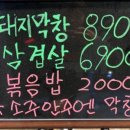 돼지막창 890
삼겹살 6900
볶음밥 2000
소주안주엔 막